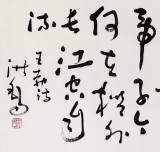 帝子今
何在槛外
长江空自
流
王勃诗